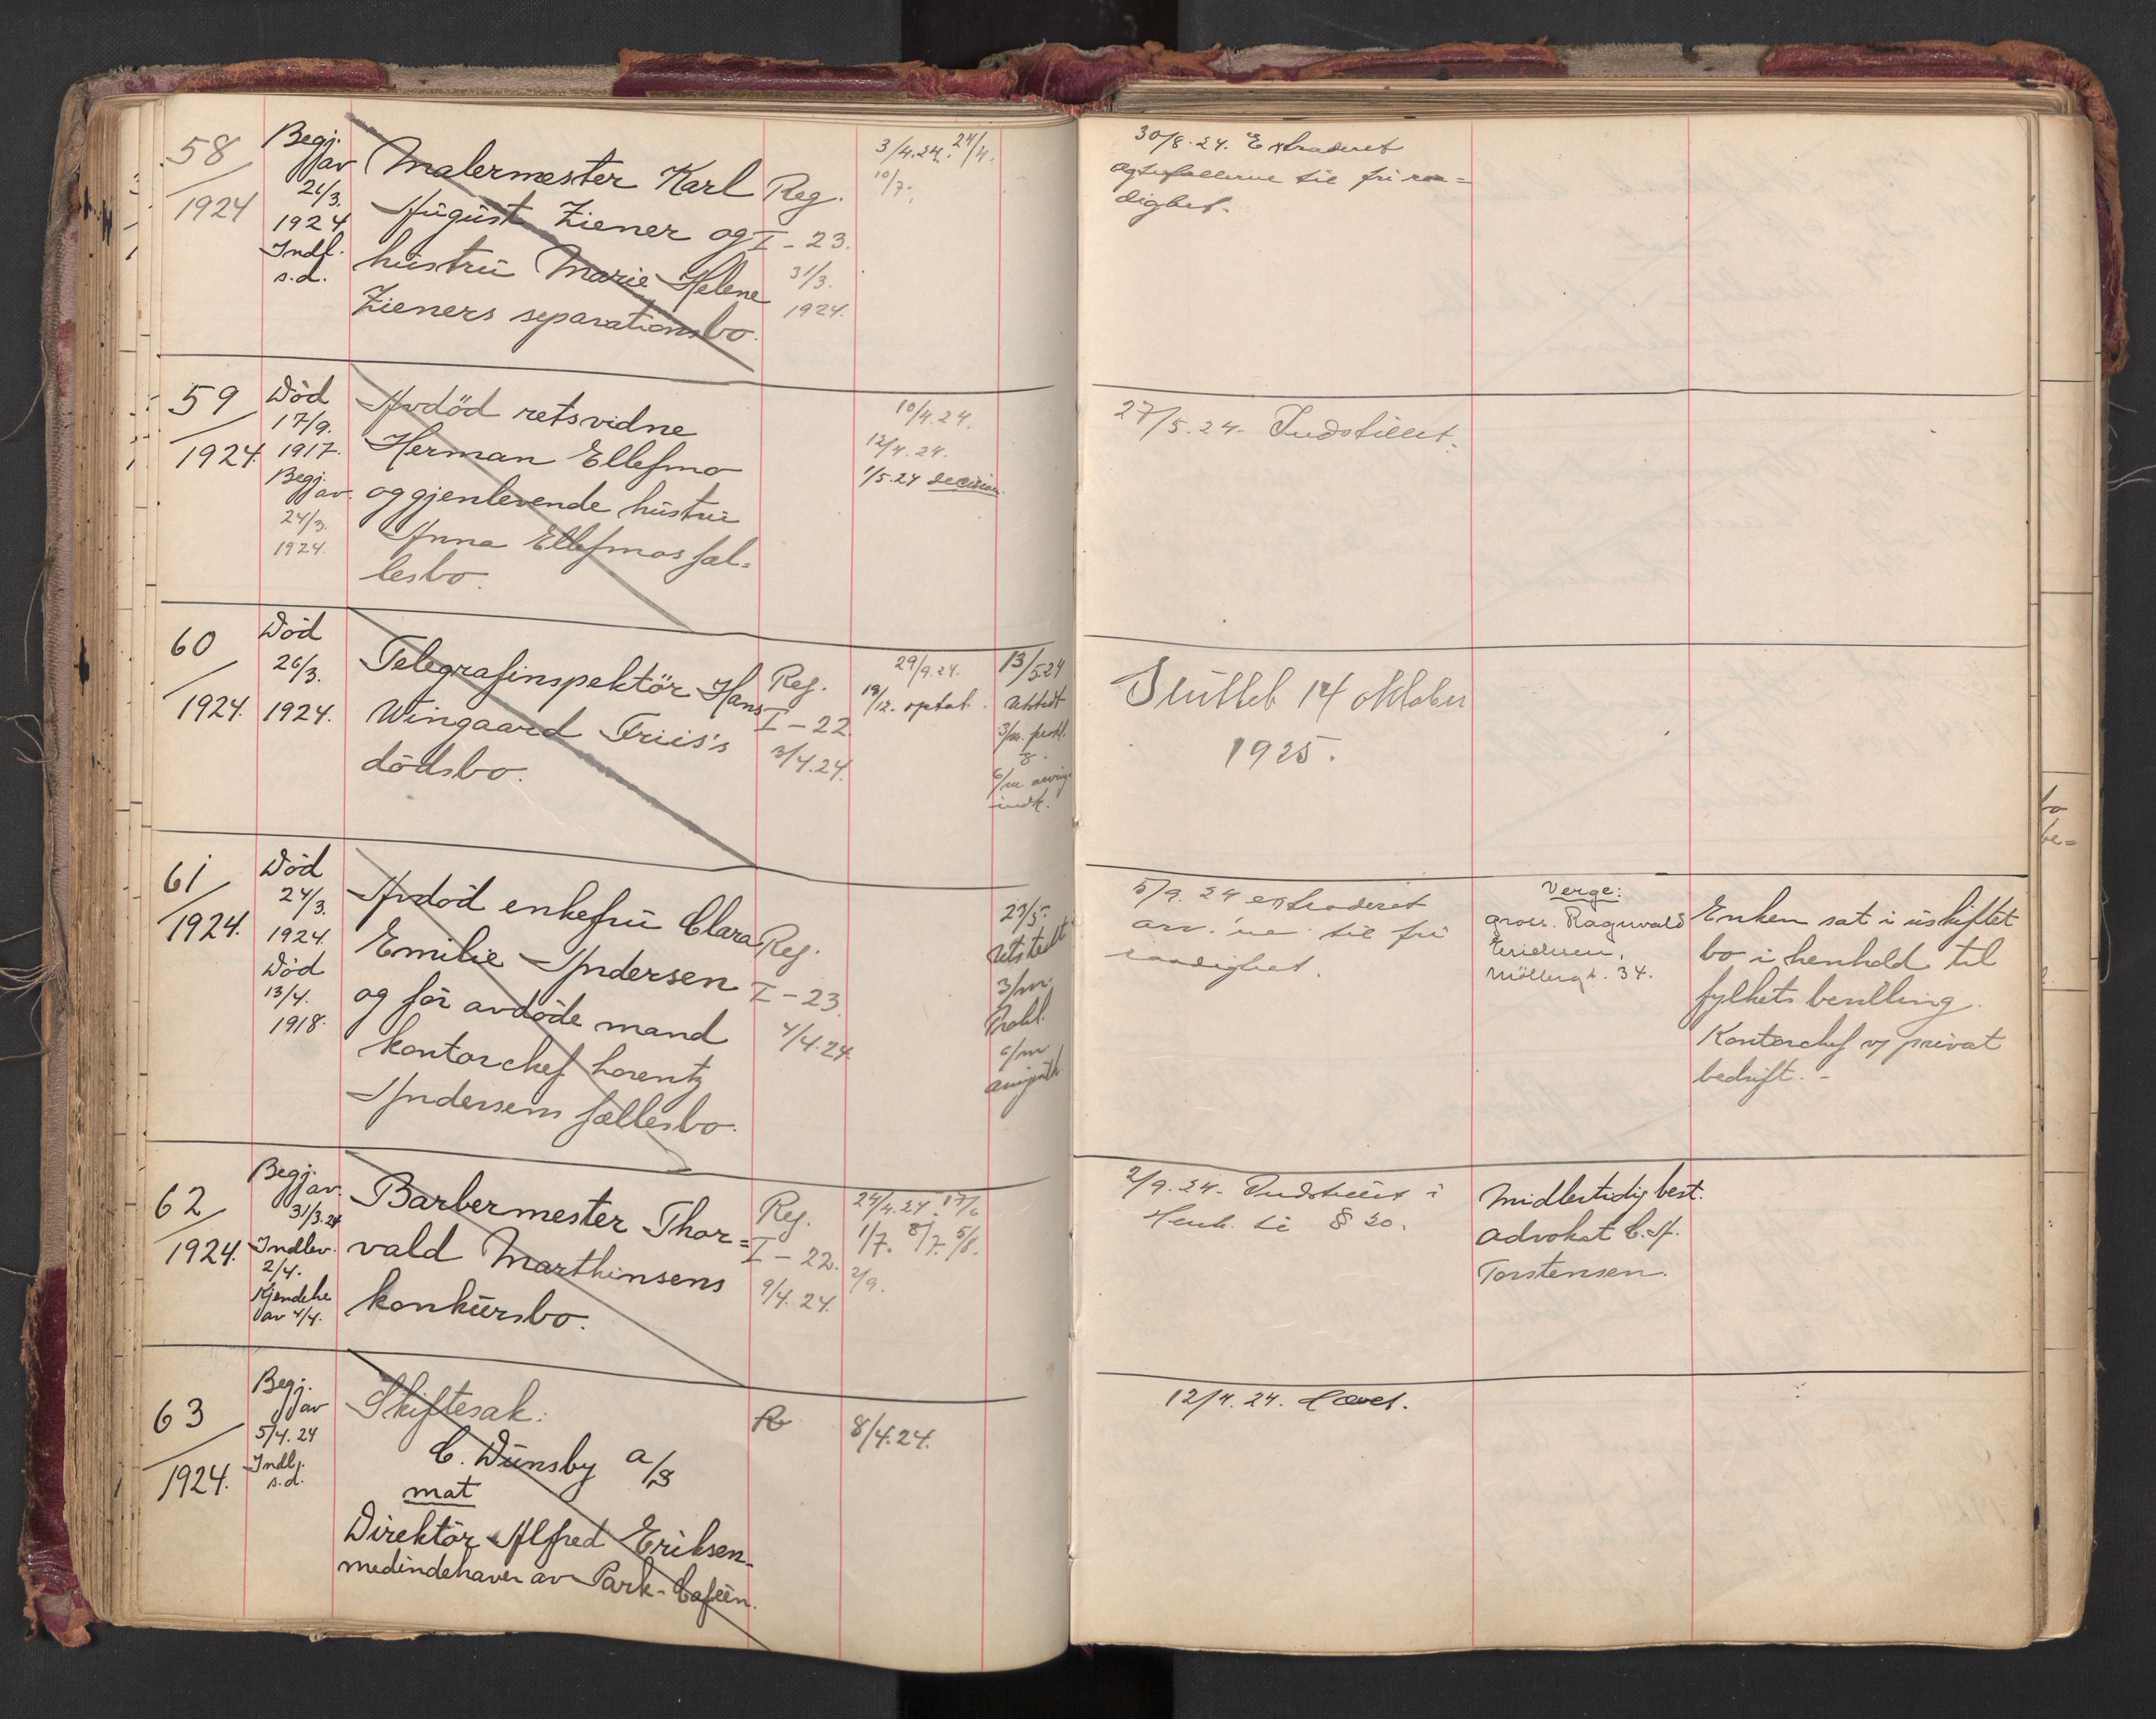 58
1924
Begj.
av
21/3.
1924
Indl.
s.d.
Malermester Karl
August Ziener og
hustru Marie Helene
Zieners separationsbo.
Reg.
I - 23.
31/3.
1924.
3/4.24. 24/4.
10/7.
30/8.24. Extraderet
ægtefællerne til fri raa=
dighet.
59
1924.
Död
17/9.
1917.
Begj.
av.
24/3.
1924.
Avdöd retsvidne
Herman Ellefmo
og gjenlevende hustru
Anna Ellefmos fæl-
lesbo.
10/4.24.
12/4.24.
1/5.24 decision.
27/5.24. Indstillet.
60
1924.
Död
26/3.
1924.
Telegrafinspektör Hans
Wingaard Friis's
dödsbo.
Reg.
I - 22.
3/4.24.
29/9.24.
19/12. optat.
13/5.24
Utstedt
3/m. prokl.
&
6/m. arving
indk.
Sluttet 14 oktober
1925.
61
1924.
Död
24/3.
1924.
Död
13/4.
1918.
Avdöd enkefru Clara
Emilie Andersen
og för avdöde mand
kontorchef Lorentz
Andersens fællesbo.
Reg.
I - 23.
4/4.24.
23/5.
Utstedt
3/m.
Prokl.
6/m.
5/9.24 extraderet
arv.ne til fri
raadighet.
Verge:
gross. Ragnvald
Möllergt. 34.
Enken sat i uskiftet
bo i henhold til
fylkets bevilling.
Kontorchef v/ privat
bedrift. -
62
1924.
Begj.
av.
31/3.24
Indlev.
2/4.
Kjendelse
av 4/4.
Barbermester Thor=
vald Marthinsens
konkursbo.
Reg.
I - 22.
9/4.24.
24/4.24. 17/6
1/7. 8/7. 5/8.
2/9.
2/9.24. Indstillet i
Henh. til § 20.
Midlertidig best.
advokat C. A.
Torstensen.
63
1924.
Begj.
av
5/4.24
Indlj.
s.d.
Skiftesak:
C. Dunsby a/s
mot
Direktör Alfred Eriksen
medindehaver av Park-Caféen.
8/4.24.
12/4.24. Hævet.